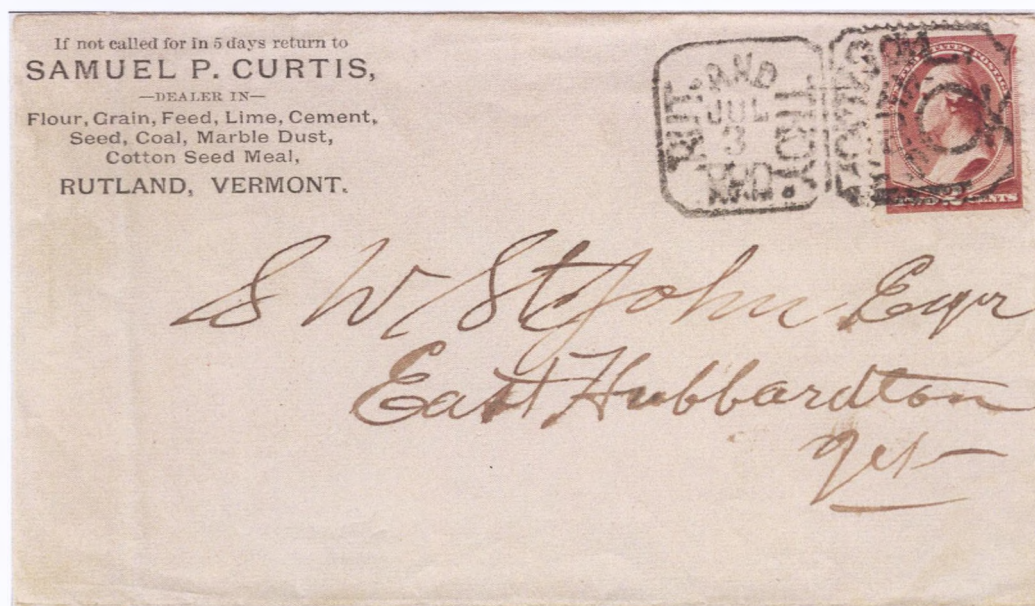 If not called for in 5 days return to
SAMUEL P. CURTIS,
—DEALER IN—
Flour, Grain, Feed, Lime, Cement,
Seed, Coal, Marble Dust,
Cotton Seed Meal,
RUTLAND, VERMONT.
RUTLAND
JUL
3
UNITED STATES POSTAGE
2 CENTS
S W St John Esqr
East Hubbardton